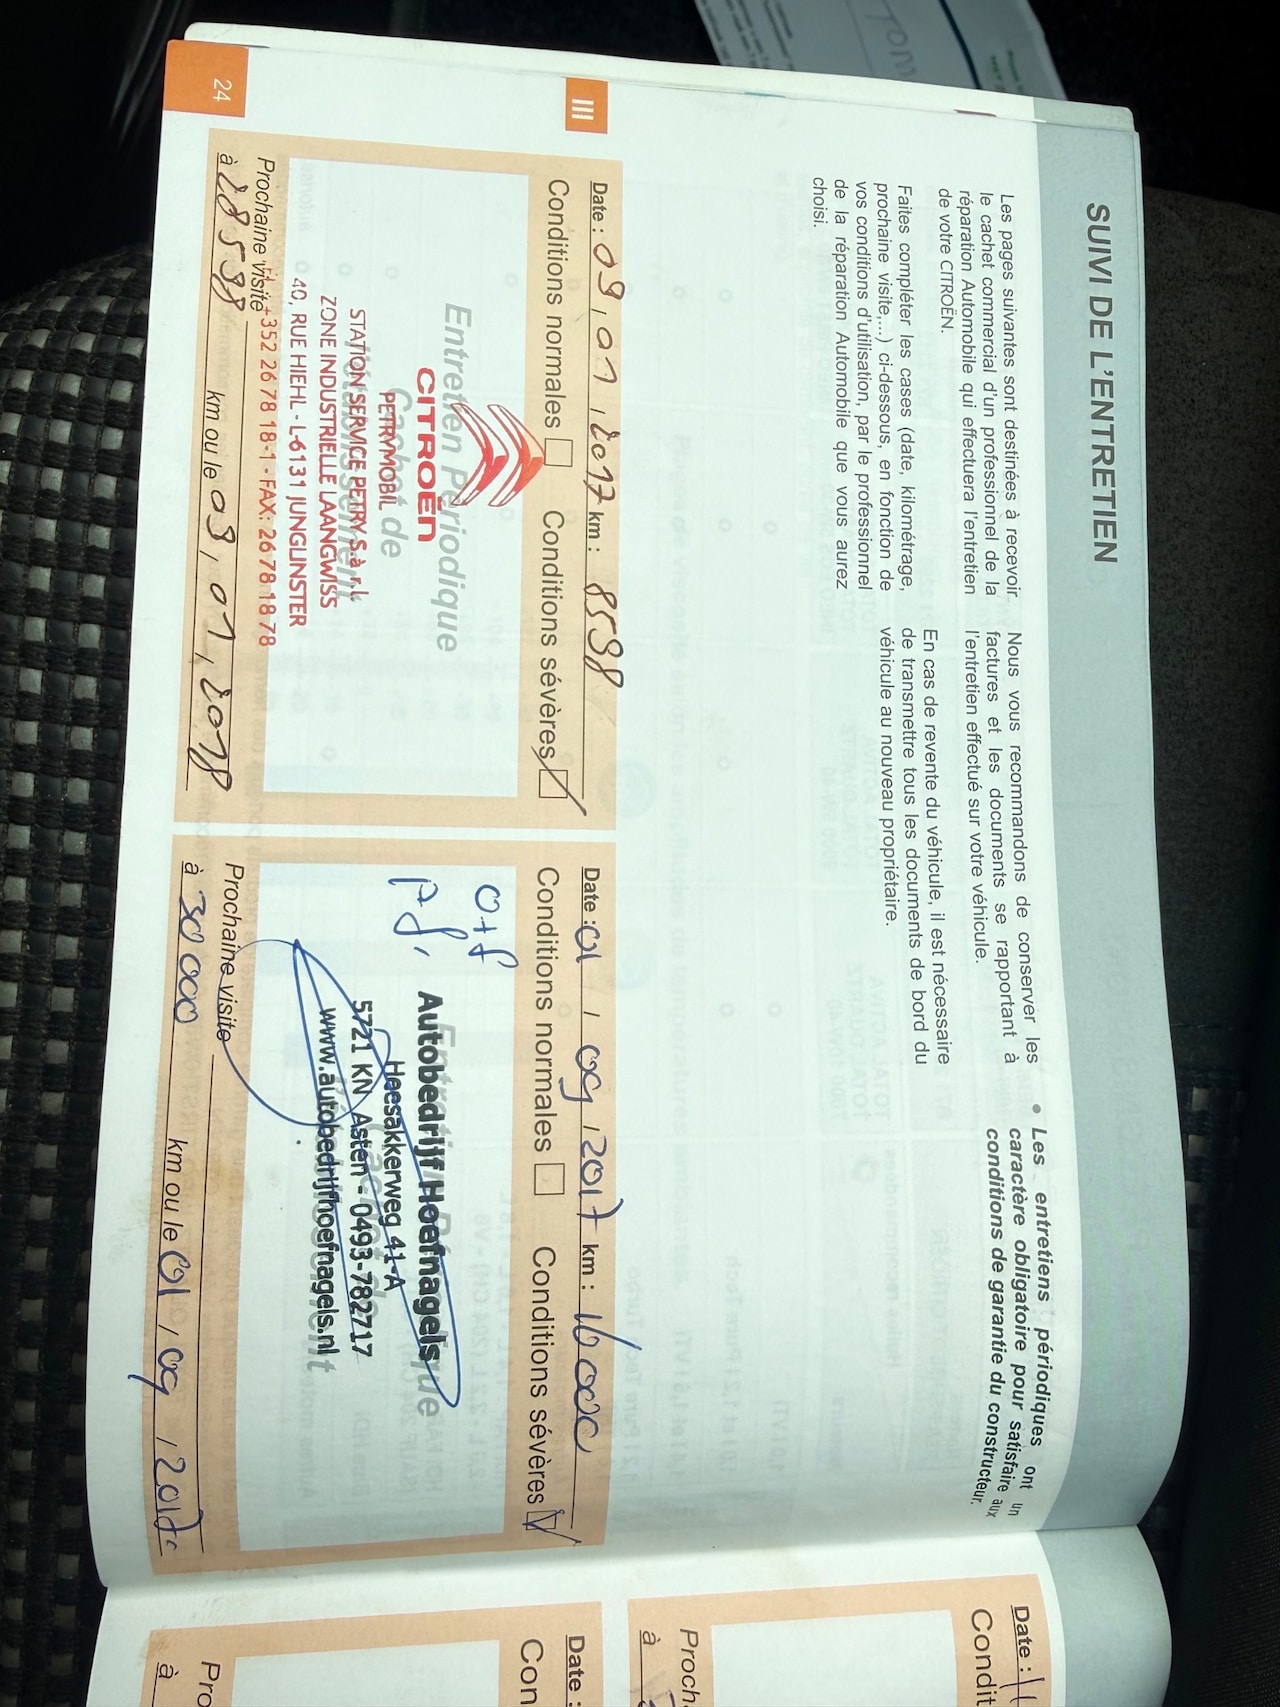 SUIVI DE L'ENTRETIEN
Les pages suivantes sont destinées à recevoir
le cachet commercial d'un professionnel de la
réparation Automobile qui effectuera l'entretien
de votre CITROËN.
Faites compléter les cases (date, kilométrage,
prochaine visite,...) ci-dessous, en fonction de
vos conditions d'utilisation, par le professionnel
de la réparation Automobile que vous aurez
choisi.
Nous vous recommandons de conserver les
factures et les documents se rapportant à
l'entretien effectué sur votre véhicule.
En cas de revente du véhicule, il est nécessaire
de transmettre tous les documents de bord du
véhicule au nouveau propriétaire.
• Les entretiens périodiques ont un
caractère obligatoire pour satisfaire aux
conditions de garantie du constructeur.
III
Date : 09, 01, 2017 km : 8598
Conditions normales Conditions sévères
Entretien Périodique
Cachet de
l'établissement
CITROËN
PETRYMOBIL
STATION SERVICE PETRY S.à r.l.
ZONE INDUSTRIELLE LAANGWISS
40, RUE HIEHL - L-6131 JUNGLINSTER
+352 26 78 18-1 - FAX: 26 78 18 78
Prochaine visite
à 28598 km ou le 09, 01, 2018
Date : 01 / 09 / 2017 km : 16000
Conditions normales Conditions sévères
O+f
Autobedrijf Hoefnagels
Heesakkerweg 41-A
5721 KN Asten - 0493-782717
www.autobedrijfhoefnagels.nl
Prochaine visite
à 30000 km ou le 01 / 09 / 201
24
Date :
Condit
Proch
à
Date :
Con
Pro
à
Tom